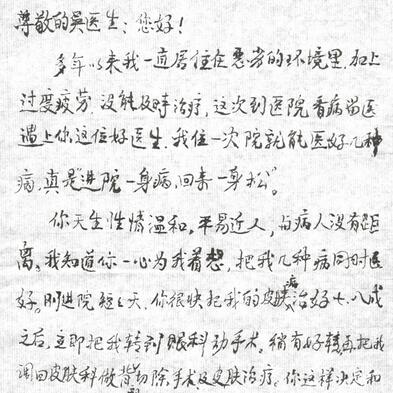 尊敬的吴医生：您好！
多年以来我一直居住在恶劣的环境里，加上
过度疲劳，没能及时治疗，这次到医院看病留医
遇上你这位好医生，我住一次院就能医好几种
病，真是“进院一身病，回来一身松”。
你天生性情温和，平易近人，与病人没有距
离。我知道你一心为我着想，把我几种病同时医
好。刚进院短短天，你很快把我的皮肤病治好七、八成
之后，立即把我转到眼科动手术。稍有好转，再把我
调回皮肤科做背切除手术及皮肤治疗。你这样决定和